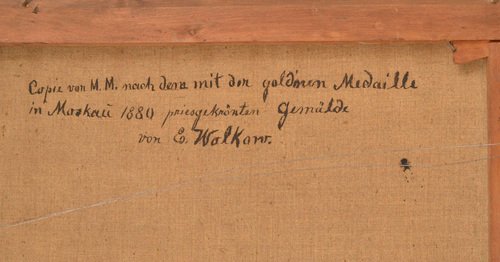 Copie von M. M. nach dem mit der goldnen Medaille
in Moskau 1880 priesgekrönten Gemälde
von E. Wolkow.